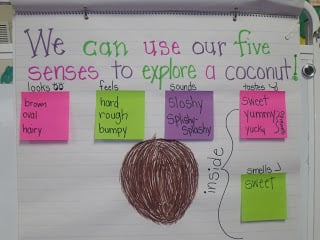 We can use our five
senses to explore a coconut!
looks
feels
sounds
tastes
brown
oval
hairy
hard
rough
bumpy
sloshy
splishy-
splashy
sweet
yummy
yucky
inside
smells
sweet